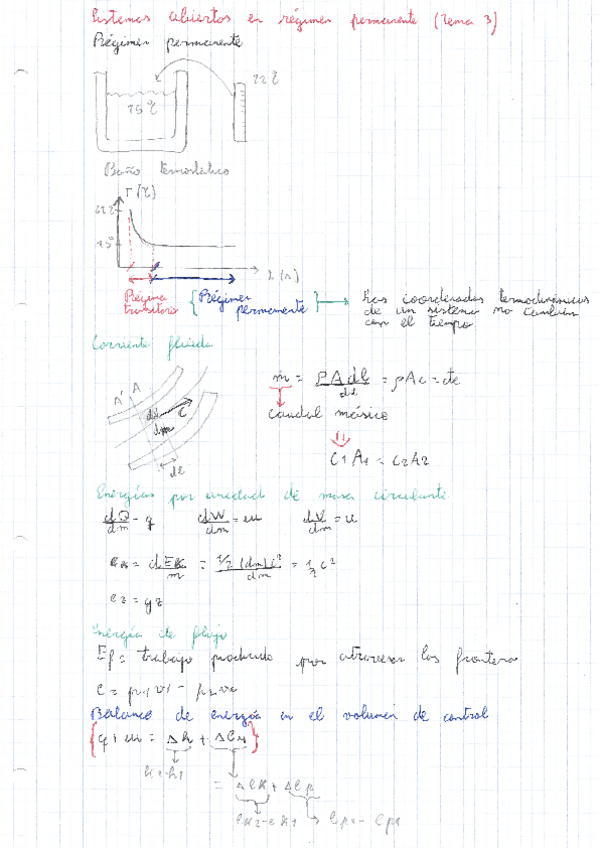 Sistemas abiertos en régimen permanente (Tema 3)
Régimen permanente
22ºC
15ºC
Baño termostático
T (ºC)
22º
15º
t (s)
Régimen transitorio { Régimen permanente } → Las coordenadas termodinámicas de un sistema no cambian con el tiempo
Corriente fluida
A' A
c
dm
dl
ṁ = ρAdl/dt = ρAc = cte
caudal másico
c1A1 = c2A2
Energías por unidad de masa circulante
dQ/dm = q dW/dm = w dU/dm = u
eK = dEK/m = 1/2 (dm)c²/dm = 1/2 c²
ez = gz
Energía de flujo
Ef = trabajo producido por atravesar las fronteras
e = p1v1 - p2v2
Balance de energía en el volumen de control
{q + w = Δh + ΔeM}
h2-h1
= ΔeK + Δep
eK2-eK1 → ep2 - ep1